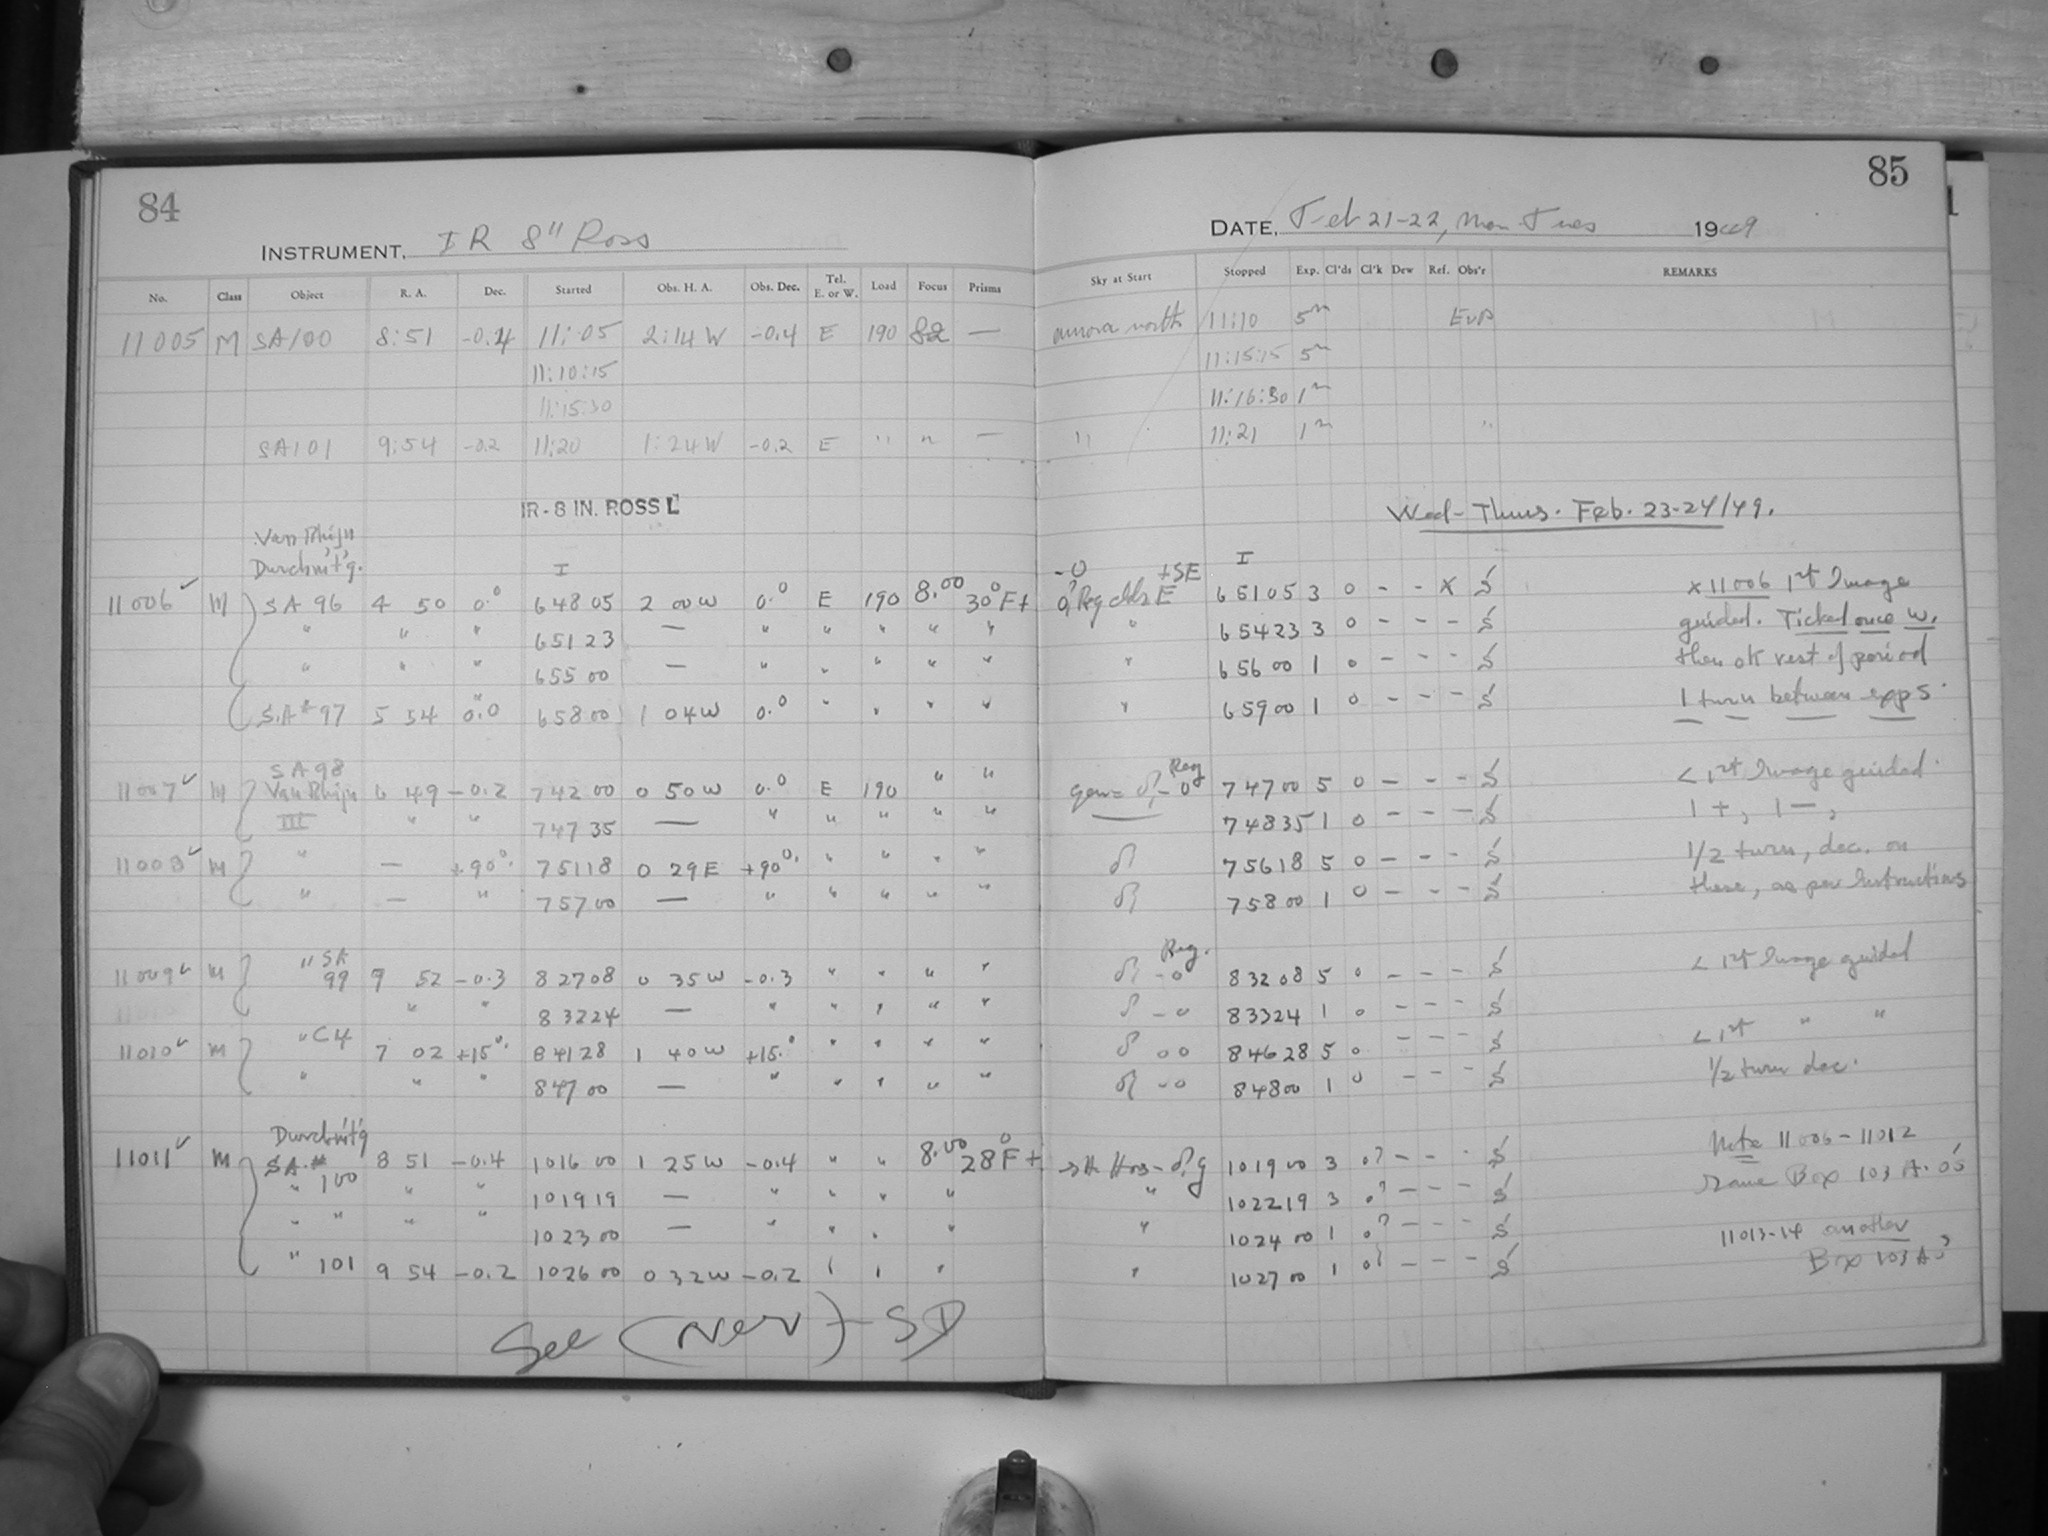 84
INSTRUMENT, IR 8" Ross
No. Class Object R. A. Dec. Started Obs. H. A. Obs. Dec. Tel. E. or W. Load Focus Prisms
11005 M SA100 8:51 -0.4 11:05 2:14 W -0.4 E 190 82 —
11:10:15
11:15:30
SA101 9:54 -0.2 11:20 1:24 W -0.2 E " " —
IR - 8 IN. ROSS L
Van Rhijn
Durchm't'g. I
11006 ✓ M SA 96 4 50 0.° 648 05 2 00W 0.° E 190 8.00 30°F+
" " " 651 23 — " " " " "
" " " 655 00 — " " " " "
S.A# 97 5 54 0.0 658 00 1 04W 0.° " " " "
SA98
11007 ✓ M Van Rhijn 6 49 -0.2 742 00 0 50W 0.° E 190 " "
III " " 747 35 — " " " " "
11008 ✓ M " — +90°. 751 18 0 29E +90°. " " " "
" — " 757 00 — " " " " "
11009 ✓ M " SA 99 9 52 -0.3 827 08 0 35W -0.3 " " " "
" " 832 24 — " " " " "
11010 ✓ M " C4 7 02 +15°. 841 28 1 40W +15.° " " " "
" " " 847 00 — " " " " "
Durchm't'g
11011 ✓ M SA.# 100 8 51 -0.4 1016 00 1 25W -0.4 " " 8.00 28°F+
" " " 1019 19 — " " " "
" " " 1023 00 — " " " "
" 101 9 54 -0.2 1026 00 0 32W -0.2 " " "
See (Nev) - SD
85
DATE, Feb 21-22, Mon Tues 1949
Sky at Start Stopped Exp. Cl'ds Cl'k Dew Ref. Obs'r REMARKS
aurora north 11:10 5m EvP
11:15:15 5m
11:16:30 1m
" 11:21 1m "
Wed - Thurs. Feb. 23-24/49.
I
651 05 3 0 - - x S x 11006 1st Image
" 654 23 3 0 - - - S guided. Ticked once W.
" 656 00 1 0 - - - S then ok rest of period
" 659 00 1 0 - - - S 1 turn between exps.
747 00 5 0 - - - S < 1st Image guided.
748 35 1 0 - - - S 1 +, 1 —,
756 18 5 0 - - - S 1/2 turn, dec. on
758 00 1 0 - - - S these, as per Instructions
Reg.
832 08 5 0 - - - S < 1st Image guided
833 24 1 0 - - - S
846 28 5 0 - - - S < 1st " "
848 00 1 0 - - - S 1/2 turn dec.
1019 00 3 0? - - - S Note 11006 - 11012
" 1022 19 3 0? - - - S same Box 103 A.O5
" 1024 00 1 0? - - - S 11013-14 another
" 1027 00 1 0? - - - S Box 103 A